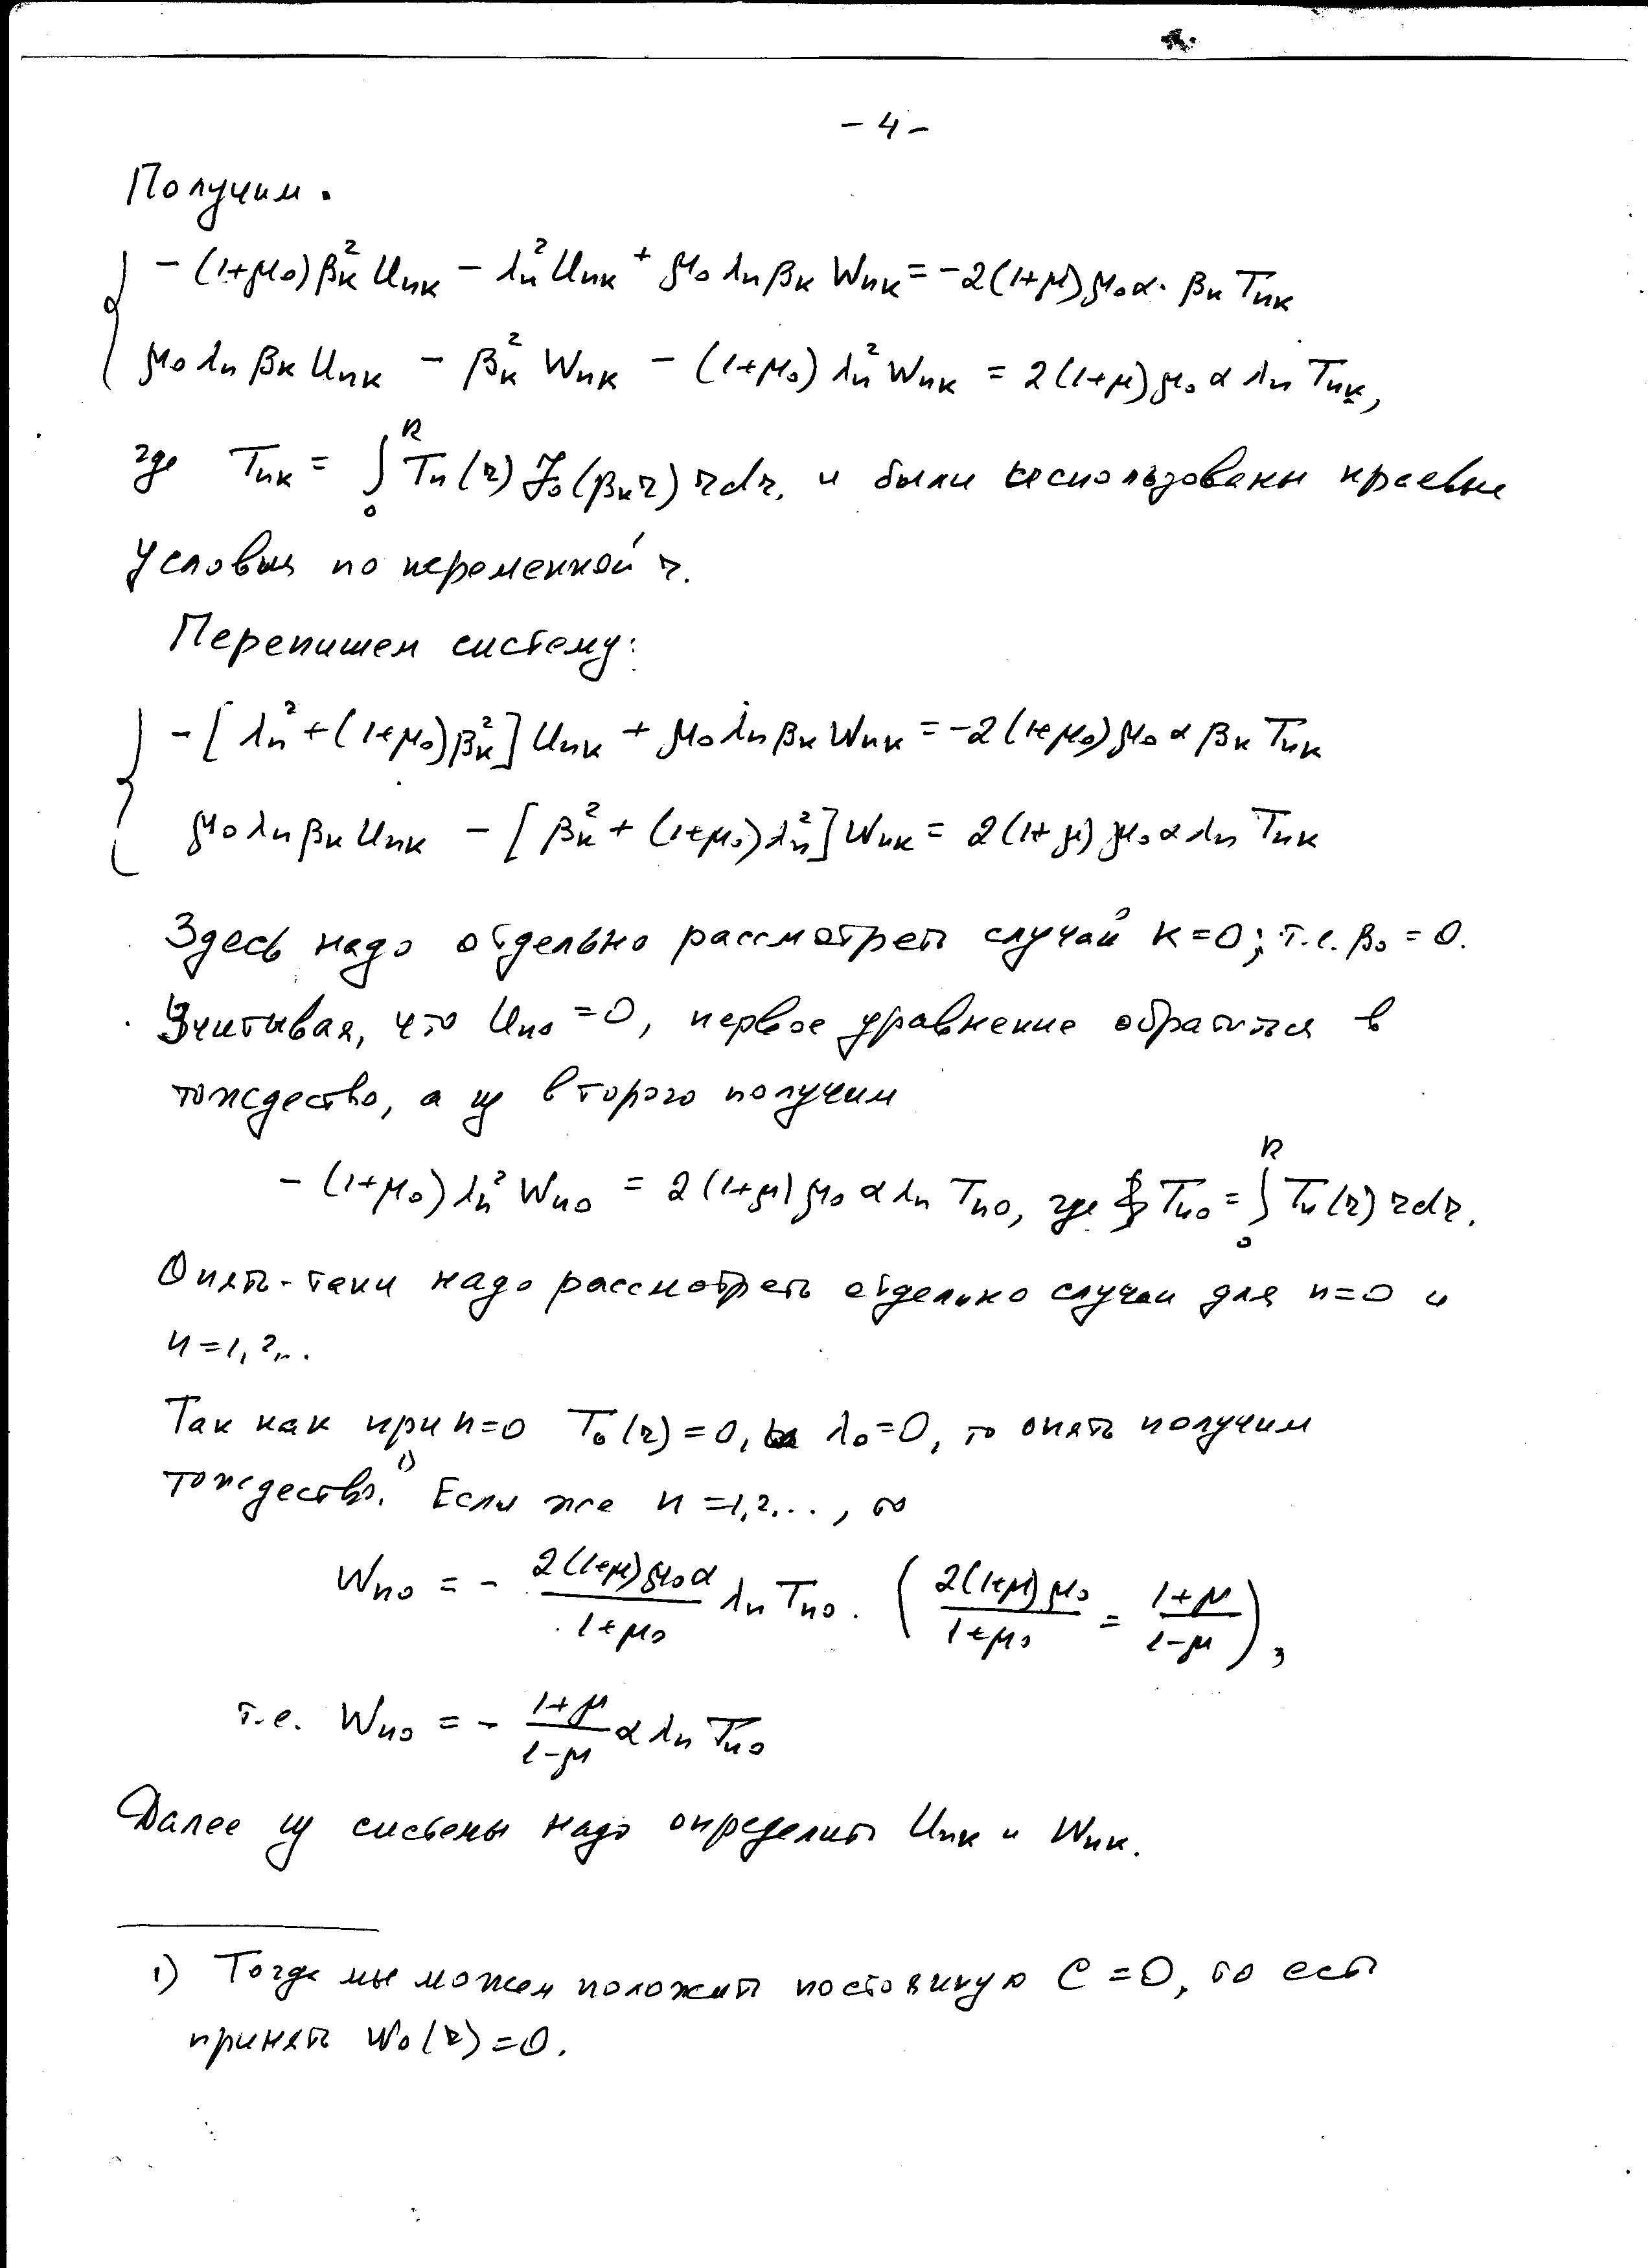 - 4 -
Получим.
- (1+μ₀) βₖ² Uₙₖ - λₙ² Uₙₖ + μ₀ λₙ βₖ Wₙₖ = -2(1+μ) μ₀ α · βₖ Tₙₖ
μ₀ λₙ βₖ Uₙₖ - βₖ² Wₙₖ - (1+μ₀) λₙ² Wₙₖ = 2(1+μ) μ₀ α λₙ Tₙₖ,
где Tₙₖ = ∫₀ᴿ Tₙ(r) J₀(βₖr) r dr, и были использованы краевые
условия по переменной r.
Перепишем систему:
- [λₙ² + (1+μ₀) βₖ²] Uₙₖ + μ₀ λₙ βₖ Wₙₖ = -2(1+μ₀) μ₀ α βₖ Tₙₖ
μ₀ λₙ βₖ Uₙₖ - [βₖ² + (1+μ₀) λₙ²] Wₙₖ = 2(1+μ) μ₀ α λₙ Tₙₖ
Здесь надо отдельно рассмотреть случай k=0; т.е. β₀ = 0.
Учитывая, что Uₙ₀ = 0, первое уравнение обратится в
тождество, а из второго получим
- (1+μ₀) λₙ² Wₙ₀ = 2(1+μ) μ₀ α λₙ Tₙ₀, где Tₙ₀ = ∫₀ᴿ Tₙ(r) r dr.
Опять-таки надо рассмотреть отдельно случаи для n=0 и
n=1, 2,..
Так как при n=0 T₀(r)=0, λ₀=0, то опять получим
тождество.¹⁾ Если же n=1, 2, ..., то
Wₙ₀ = - 2(1+μ)μ₀α / (1+μ₀) λₙ Tₙ₀. ( 2(1+μ)μ₀ / (1+μ₀) = (1+μ) / (1-μ) ),
т.е. Wₙ₀ = - (1+μ) / (1-μ) α λₙ Tₙ₀
Далее из системы надо определить Uₙₖ и Wₙₖ.
1) Тогда мы можем положить постоянную C = 0, то есть
принять w₀(r) = 0.